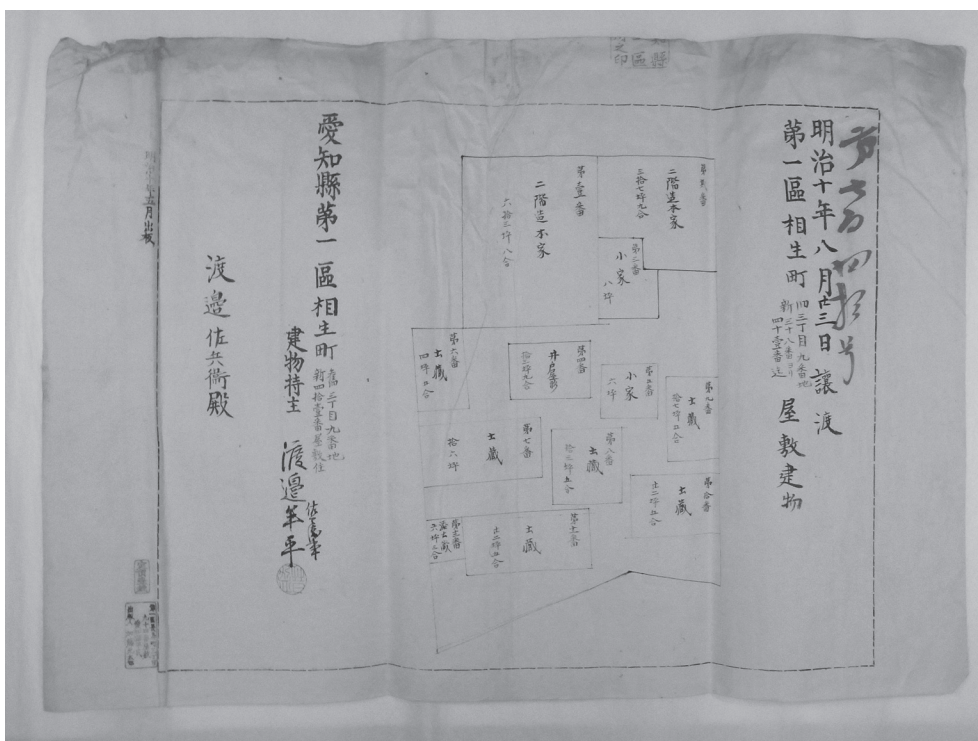 第七百四拾号
明治十年八月廿三日 讓渡
第一區相生町
旧三丁目九番地
新三十八番ヨリ
四十壹番迄
屋敷建物
第貳番
二階造本家
三拾七坪九合
第壹番
二階造本家
六拾三坪八合
第三番
小家
八坪
第四番
井戸屋形
第五番
小家
六坪
第六番
土藏
四坪五合
第九番
土藏
拾七坪五合
第七番
土藏
拾六坪
第八番
土藏
拾三坪五合
第拾番
土藏
廿二坪五合
第十一番
土藏
廿二坪五合
第十二番
土藏
六坪二合
愛知縣第一區相生町
舊三丁目九番地
新四拾壹番屋敷住
建物持主
渡邉半平
渡邉佐兵衛殿
月出板